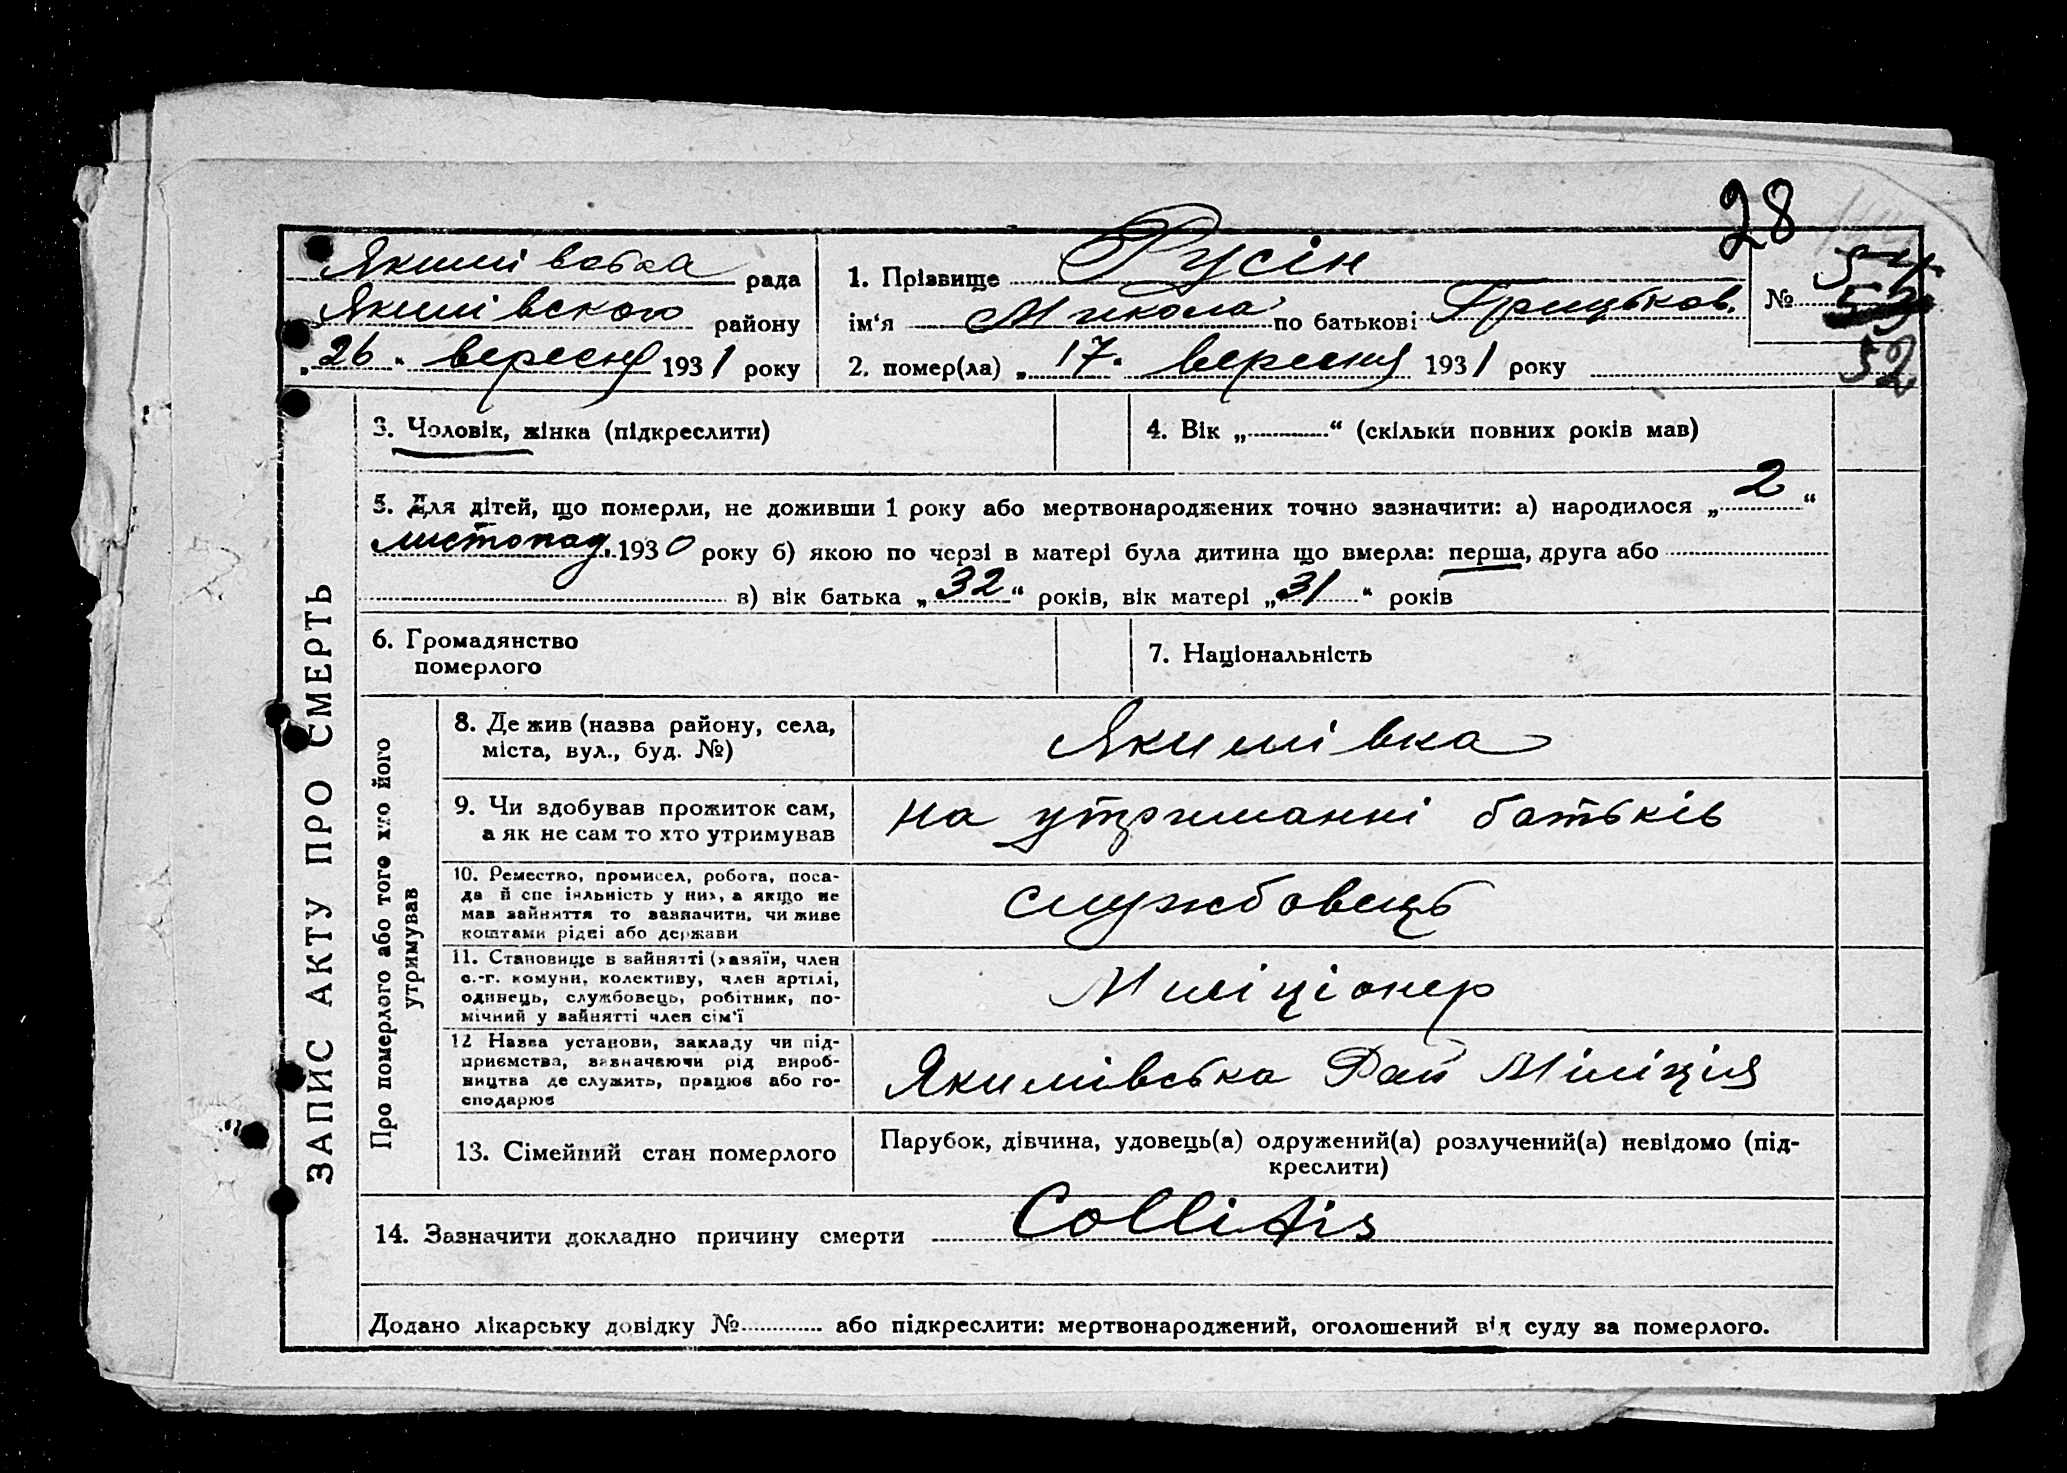 28
Якимівська рада
Якимівського району
„26“ вересня 1931 року
1. Прізвище Русін
ім‘я Микола по батькові Грицьков.
№ 54
52
2. помер(ла) „17“ вересня 1931 року
52
ЗАПИС АКТУ ПРО СМЕРТЬ
3. Чоловік, жінка (підкреслити)
4. Вік „ “ (скільки повних років мав)
5. Для дітей, що померли, не доживши 1 року або мертвонароджених точно зазначити: а) народилося „2“
листопад. 1930 року б) якою по черзі в матері була дитина що вмерла: перша, друга або
в) вік батька „32“ років, вік матері „31“ років
6. Громадянство
померлого
7. Національність
Про померлого або того хто його
утримував
8. Де жив (назва району, села,
міста, вул., буд. №)
Якимівка
9. Чи здобував прожиток сам,
а як не сам то хто утримував
на утриманні батьків
10. Ремество, промисел, робота, поса-
да й спеціяльність у них, а якщо не
мав зайняття то зазначити, чи живе
коштами рідні або держави
службовець
11. Становище в зайнятті (хазяїн, член
с.-г. комуни, колективу, член артілі,
одинець, службовець, робітник, по-
мічний у зайнятті член сім'ї
Міліціонер
12 Назва установи, закладу чи під-
приємства, зазначаючи рід вироб-
ництва де служить, працює або го-
сподарює
Якимівська Рай Міліція
13. Сімейний стан померлого
Парубок, дівчина, удовець(а) одружений(а) розлучений(а) невідомо (під-
креслити)
14. Зазначити докладно причину смерти Collitis
Додано лікарську довідку № або підкреслити: мертвонароджений, оголошений від суду за померлого.